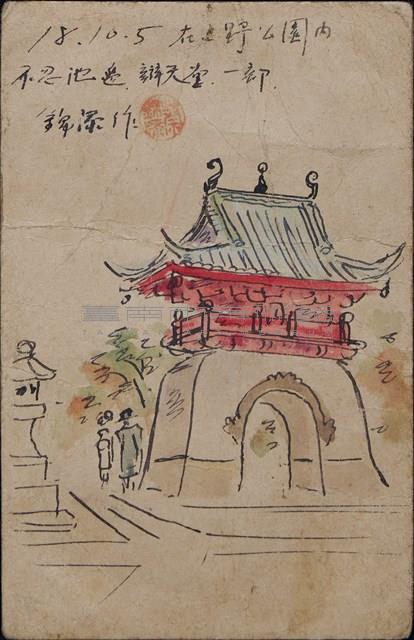 18.10.5 在上野公園内
不忍池邊 辯天堂 一部.
錦瀑作